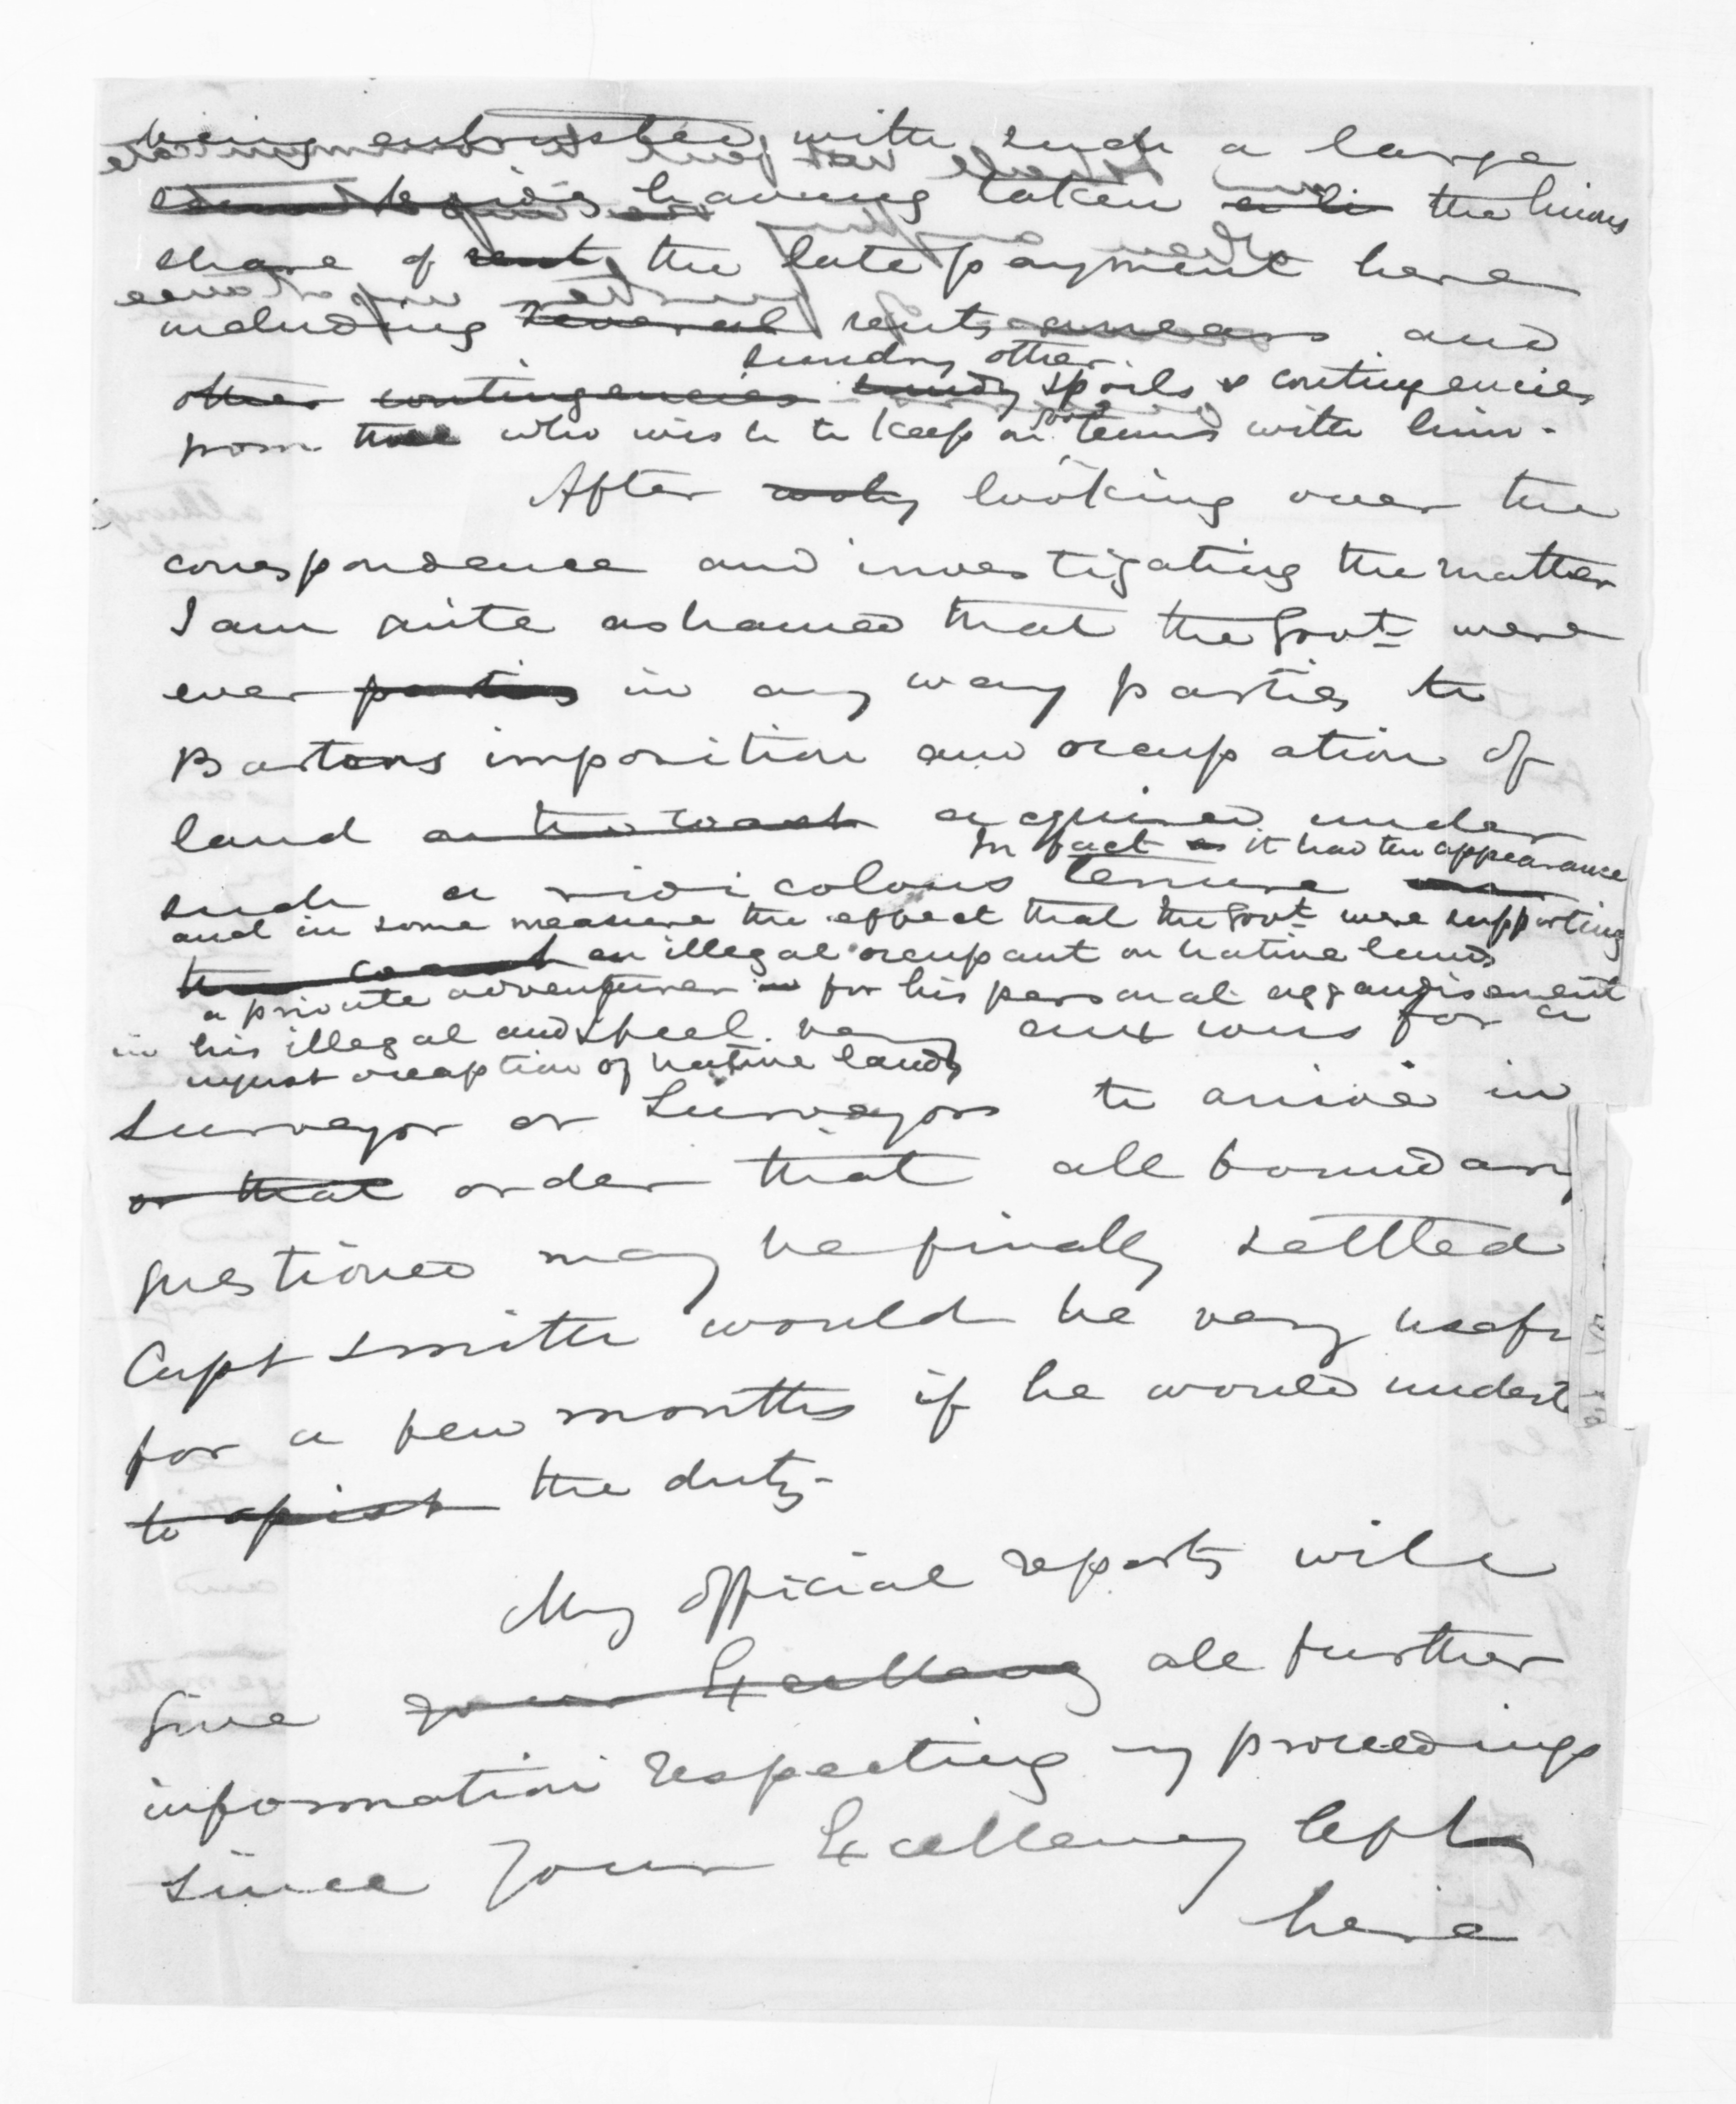 being entrusted, with such a large
sum besides having taken a li the lions
share of rent the late payment here
including several rents arrears and
sundry other
other contingencies sundry spoils & contingencies
from those who wish to keep on good terms with him.
After looking over the
correspondence and investigating the matter
I am quite ashamed that the Govt were
ever parties in any way parties to
Bartons imposition and occupation of
land on the coast acquired under
In fact as it had the appearance
such a ridicolous tenure
and in some measure the effect that the Govt were supporting
the coast an illegal occupant on native lands
a private adventurer in for his personal aggrandisement
in his illegal and
I feel very anxious for a
unjust occuption of native lands
Surveyor or Surveyors to arrive in
or that order that all boundary
questions may be finally settled
Capt Smith would be very usefu
for a few months if he would undert
to assist the duty-
My official reports will
Give your Excellency all further
information respecting my proceedings
since your Excellency left
here